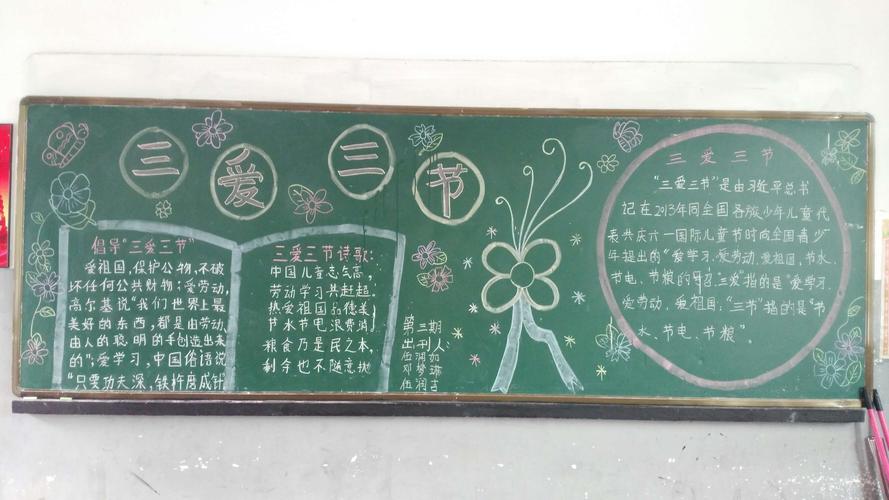 三爱三节
倡导“三爱三节”
爱祖国,保护公物,不破
坏任何公共财物;爱劳动,
高尔基说“我们世界上最
美好的东西,都是由劳动、
由人的聪明的手创造出来
的”;爱学习,中国俗语说
“只要功夫深,铁杵磨成针
三爱三节诗歌:
中国儿童志气高,
劳动学习共赶超。
热爱祖国品德美,
节水节电浪费消,
粮食乃是民之本,
剩个也不随意抛
第三期
出刊人:
伍润如
邓梦琳
伍润吉
三爱三节
“三爱三节”是由习近平总书
记在2013年同全国各族少年儿童代
表共庆六一国际儿童节时向全国青少
年提出的“爱学习、爱劳动、爱祖国,节水、
节电、节粮的号召。“三爱”指的是“爱学习、
爱劳动、爱祖国;“三节”指的是“节
水、节电、节粮”。